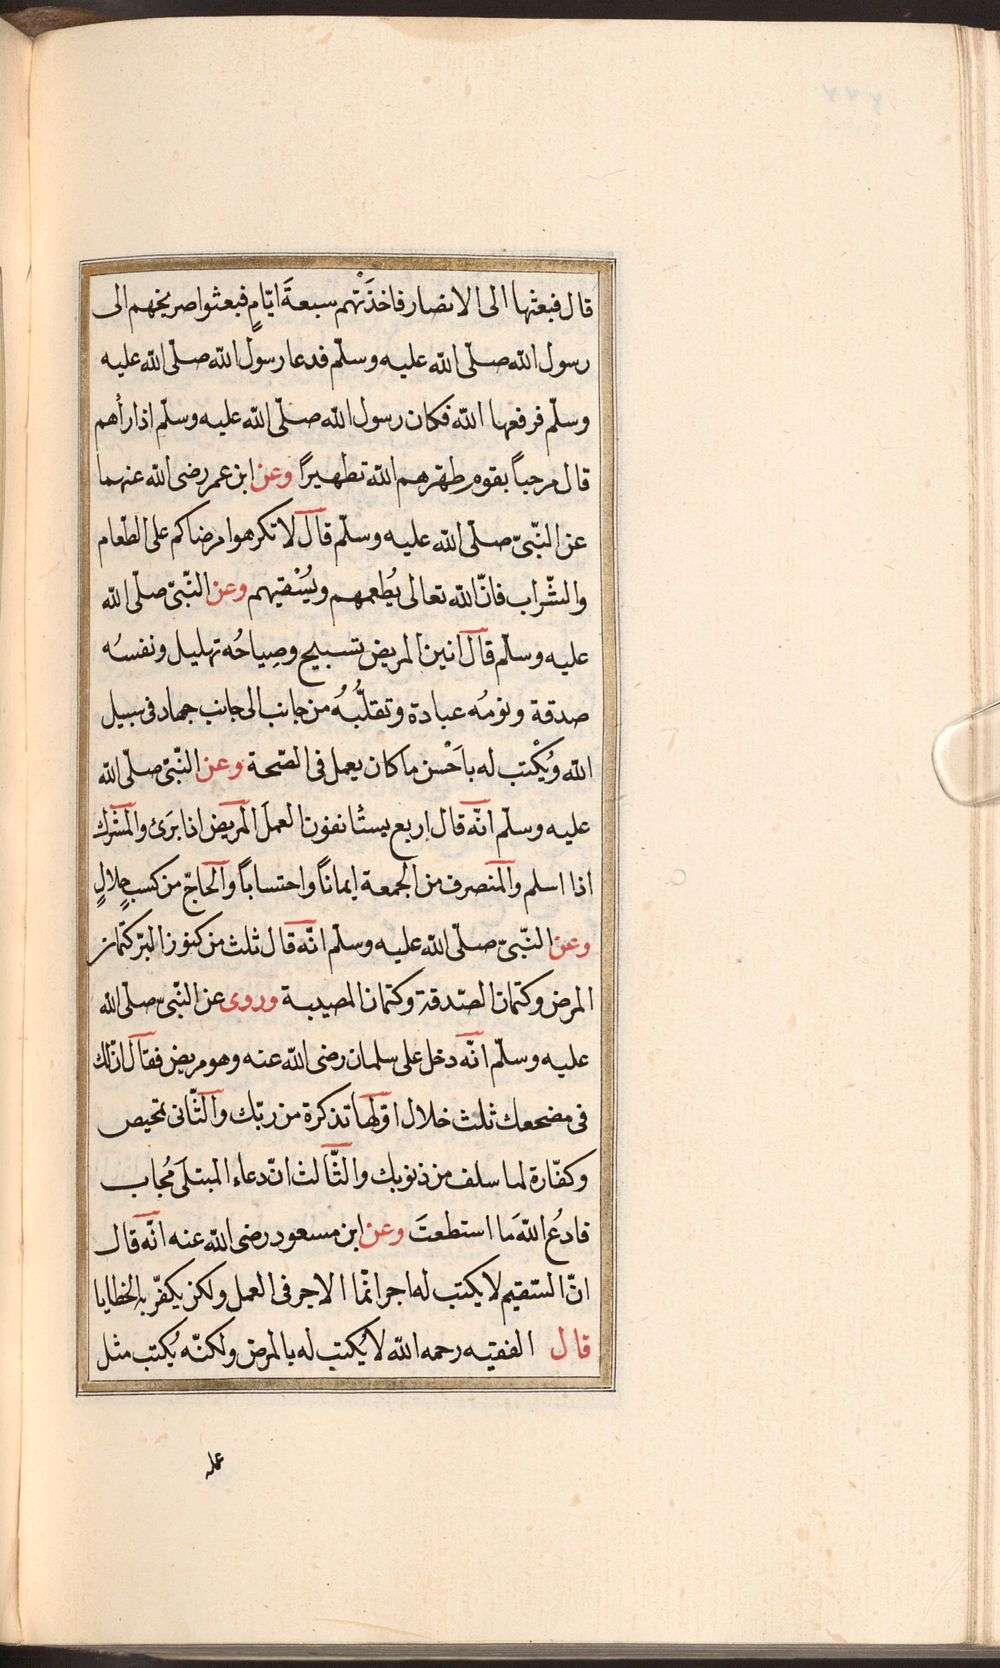 قال فبعثها الى الانصار فاخذَتْهم سبعةَ ايّامٍ فبعثوا صريخهم الى
رسول الله صلّى الله عليه وسلّم فدعا رسول الله صلّى الله عليه
وسلّم فرفعها الله فكان رسول الله صلّى الله عليه وسلّم اذا راٰهم
قال مرحباً بقوم طهّرهم الله تطهيراً وعن ابن عمر رضى الله عنهما
عن النّبىّ صلّى الله عليه وسلّم قال لا تكرهوا مرضاكم على الطّعام
والشّراب فانّ الله تعالى يُطعمهم ويُسْقيهم وعن النّبىّ صلّى الله
عليه وسلّم قال انين المريض تسبيح وصِياحُه تهليل ونفسُه
صدقة ونومُه عبادة وتقلّبُهُ من جانب الى جانب جهاد فى سبيل
الله ويُكْتب له باَحْسن ما كان يعمل فى الصّحة وعن النّبىّ صلّى الله
عليه وسلّم انّه قال اربع يستأنفون العملَ المريض اذا برَئ والمشرك
اذا اسلم والمنصرف من الجمعة ايماناً واحتساباً والحاجّ من كسبٍ حلالٍ
وعن النّبىّ صلّى الله عليه وسلّم انّه قال ثلث من كنوز البرّ كتمان
المرض وكتمان الصّدقة وكتمان المصيبة وروى عن النّبىّ صلّى الله
عليه وسلّم انّه دخل على سلمان رضى الله عنه وهو مريض فقال انّ لك
فى مضجعك ثلث خلال اوّلها تذكرة من ربّك والثّانى تمحيص
وكفّارة لما سلف من ذنوبك والثّالث انّ دعاء المبتلَى مُجاب
فادعُ اللهَ ما استطعتَ وعن ابن مسعود رضى الله عنه انّه قال
انّ السّقيم لا يكتب له اجر انّما الاجر فى العمل ولكن يكفّر به الخطايا
قال الفقيه رحمه الله لا يُكتب له بالمرض ولكنّه يُكتب مثل
عمله